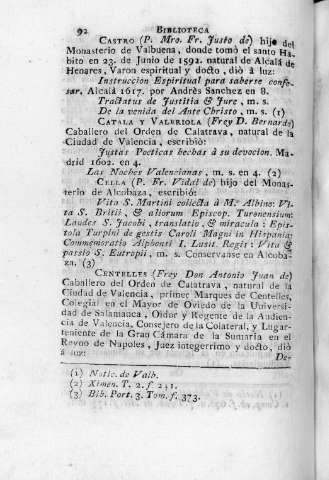 92 BIBLIOTECA
CASTRO (P. Mro. Fr. Justo de) hijo del
Monasterio de Valbuena, donde tomó el santo Ha-
bito en 23. de Junio de 1592. natural de Alcalá de
Henares, Varon espiritual y docto, dió à luz:
Instruccion Espiritual para saberse confe-
sar. Alcalá 1617. por Andrès Sanchez en 8.
Tractatus de Justitia & Jure, m. s.
De la venida del Ante Christo, m. s. (1)
CATALA Y VALERIOLA (Frey D. Bernardo)
Caballero del Orden de Calatrava, natural de la
Ciudad de Valencia, escribió:
Justas Poeticas hechas à su devocion. Ma-
drid 1602. en 4.
Las Noches Valencianas, m. s. en 4. (2)
CELLA (P. Fr. Vidal de) hijo del Monas-
terio de Alcobaza, escribió:
Vita S. Martini collecta à M. Albino: Vi-
ta S. Britii, & aliorum Episcop. Turonensium:
Laudes S. Jacobi, translatio, & miracula: Epis-
tola Turpini de gestis Caroli Magni in Hispania:
Commemoratio Alphonsi I. Lusit. Regis: Vita &
passio S. Eutropii, m. s. Conservanse en Alcoba-
za. (3)
CENTELLES (Frey Don Antonio Juan de)
Caballero del Orden de Calatrava, natural de la
Ciudad de Valencia, primer Marques de Centelles,
Colegial en el Mayor de Oviedo de la Universi-
dad de Salamanca, Oidor y Regente de la Audien-
cia de Valencia, Consejero de la Colateral, y Lugar-
teniente de la Gran Cámara de la Sumaria en el
Reyno de Napoles, Juez integerrimo y docto, dió
à luz:
De-
(1) Notic. de Valb.
(2) Ximen. T. 2. f. 231.
(3) Bib. Port. 3. Tom. f. 373.